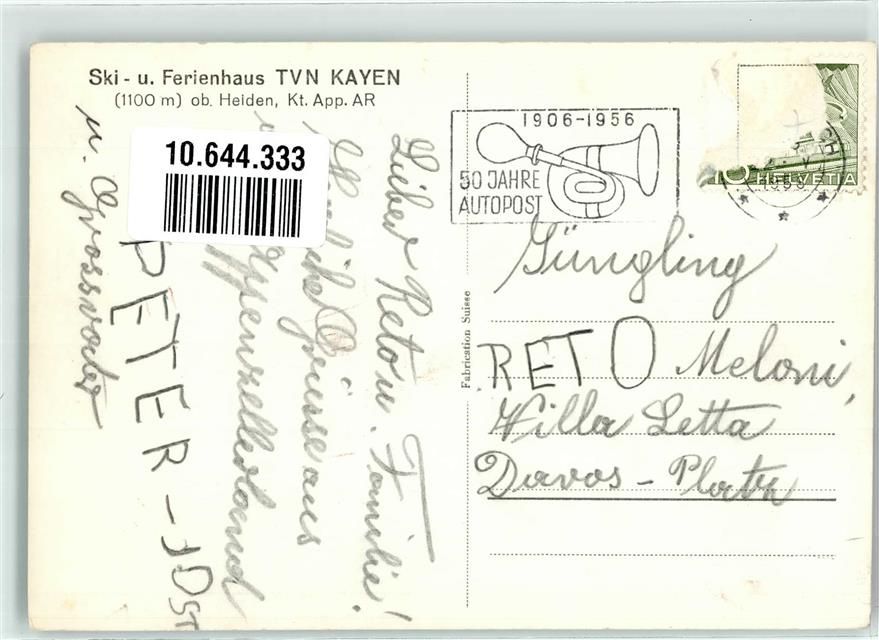 Ski- u. Ferienhaus TVN KAYEN
(1100 m) ob. Heiden, Kt. App. AR
10.644.333
Lieber Reto u. Familie!
Herzliche Grüsse aus
Appenzellerland
PETER-JOST
u. Grossvater
Fabrication Suisse
1906-1956
50 JAHRE
AUTOPOST
10 HELVETIA
Jüngling
RETO Meloni,
Villa Letta
Davos - Platz